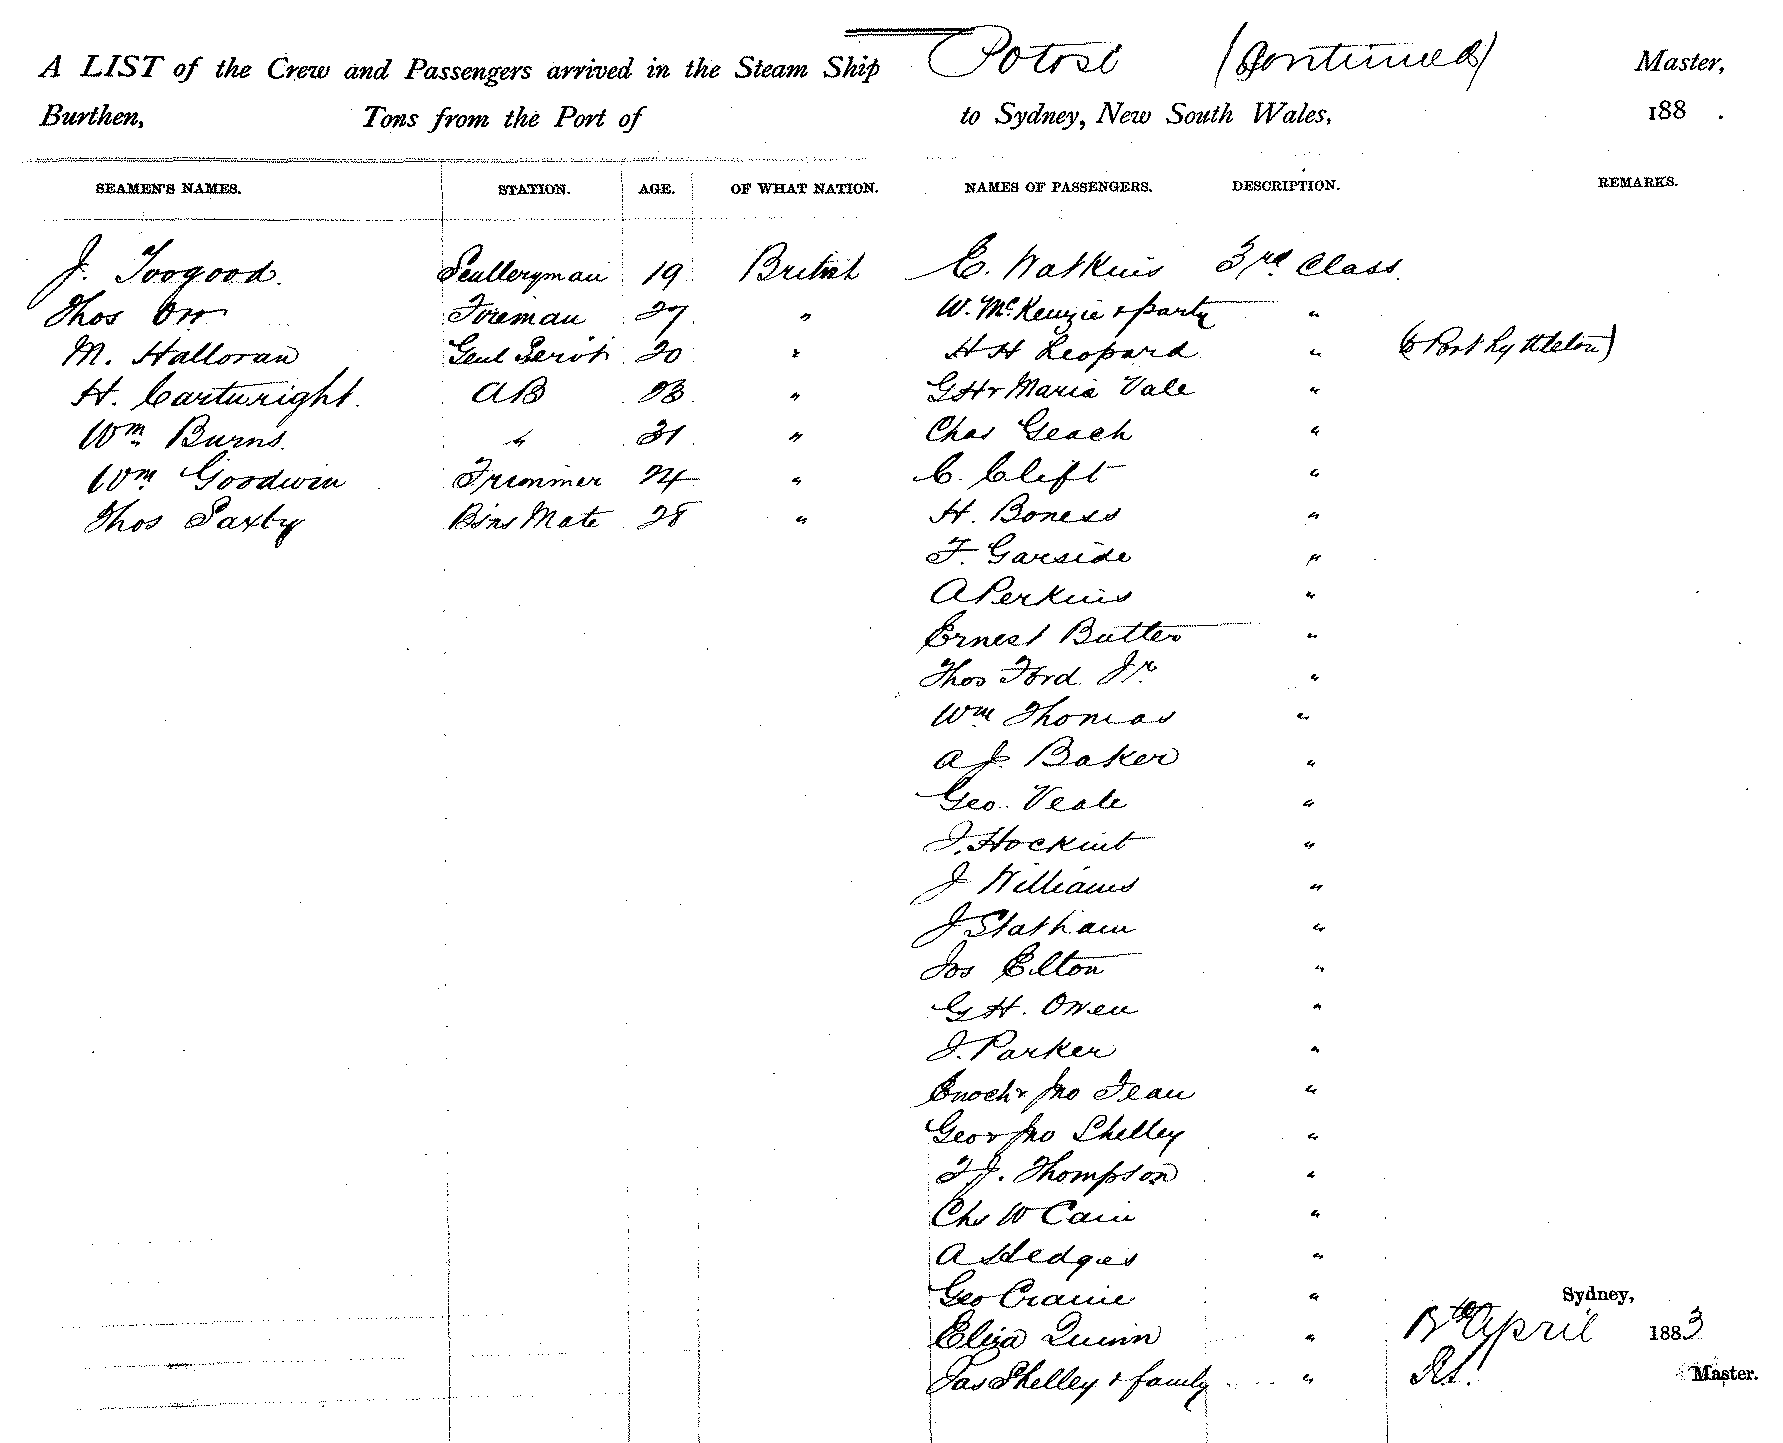 A LIST of the Crew and Passengers arrived in the Steam Ship Potosi (Continued) Master,
Burthen, Tons from the Port of to Sydney, New South Wales, 188 .
SEAMEN'S NAMES. STATION. AGE. OF WHAT NATION. NAMES OF PASSENGERS. DESCRIPTION. REMARKS.
J. Toogood. Sculleryman 19 British C. Watkins 3rd Class.
Thos Orr Foreman 27 " W. McKenzie & party "
M. Halloran Genl Servt 20 " H H Leopard " (To Port Lyttleton)
H. Cartwright. AB 23 " G H & Maria Vale "
Wm Burns. " 31 " Chas Geach "
Wm Goodwin Trimmer 24 " C. Clift "
Thos Saxby Bsns Mate 28 " H. Boness "
F. Garside "
A Perkins "
Ernest Butter "
Thos Ford Jr "
Wm Thomas "
A J. Baker "
Geo. Veale "
J. Hockint "
J Williams "
J Statham "
Jos Elton "
G H. Owen "
J. Parker "
Enoch & Jno Jean "
Geo & Jno Shelley "
T J. Thompson "
Chs W Cain "
A Hedges "
Geo Craine " Sydney,
Eliza Quinn " April 1883
Jas Shelley & family " Master.